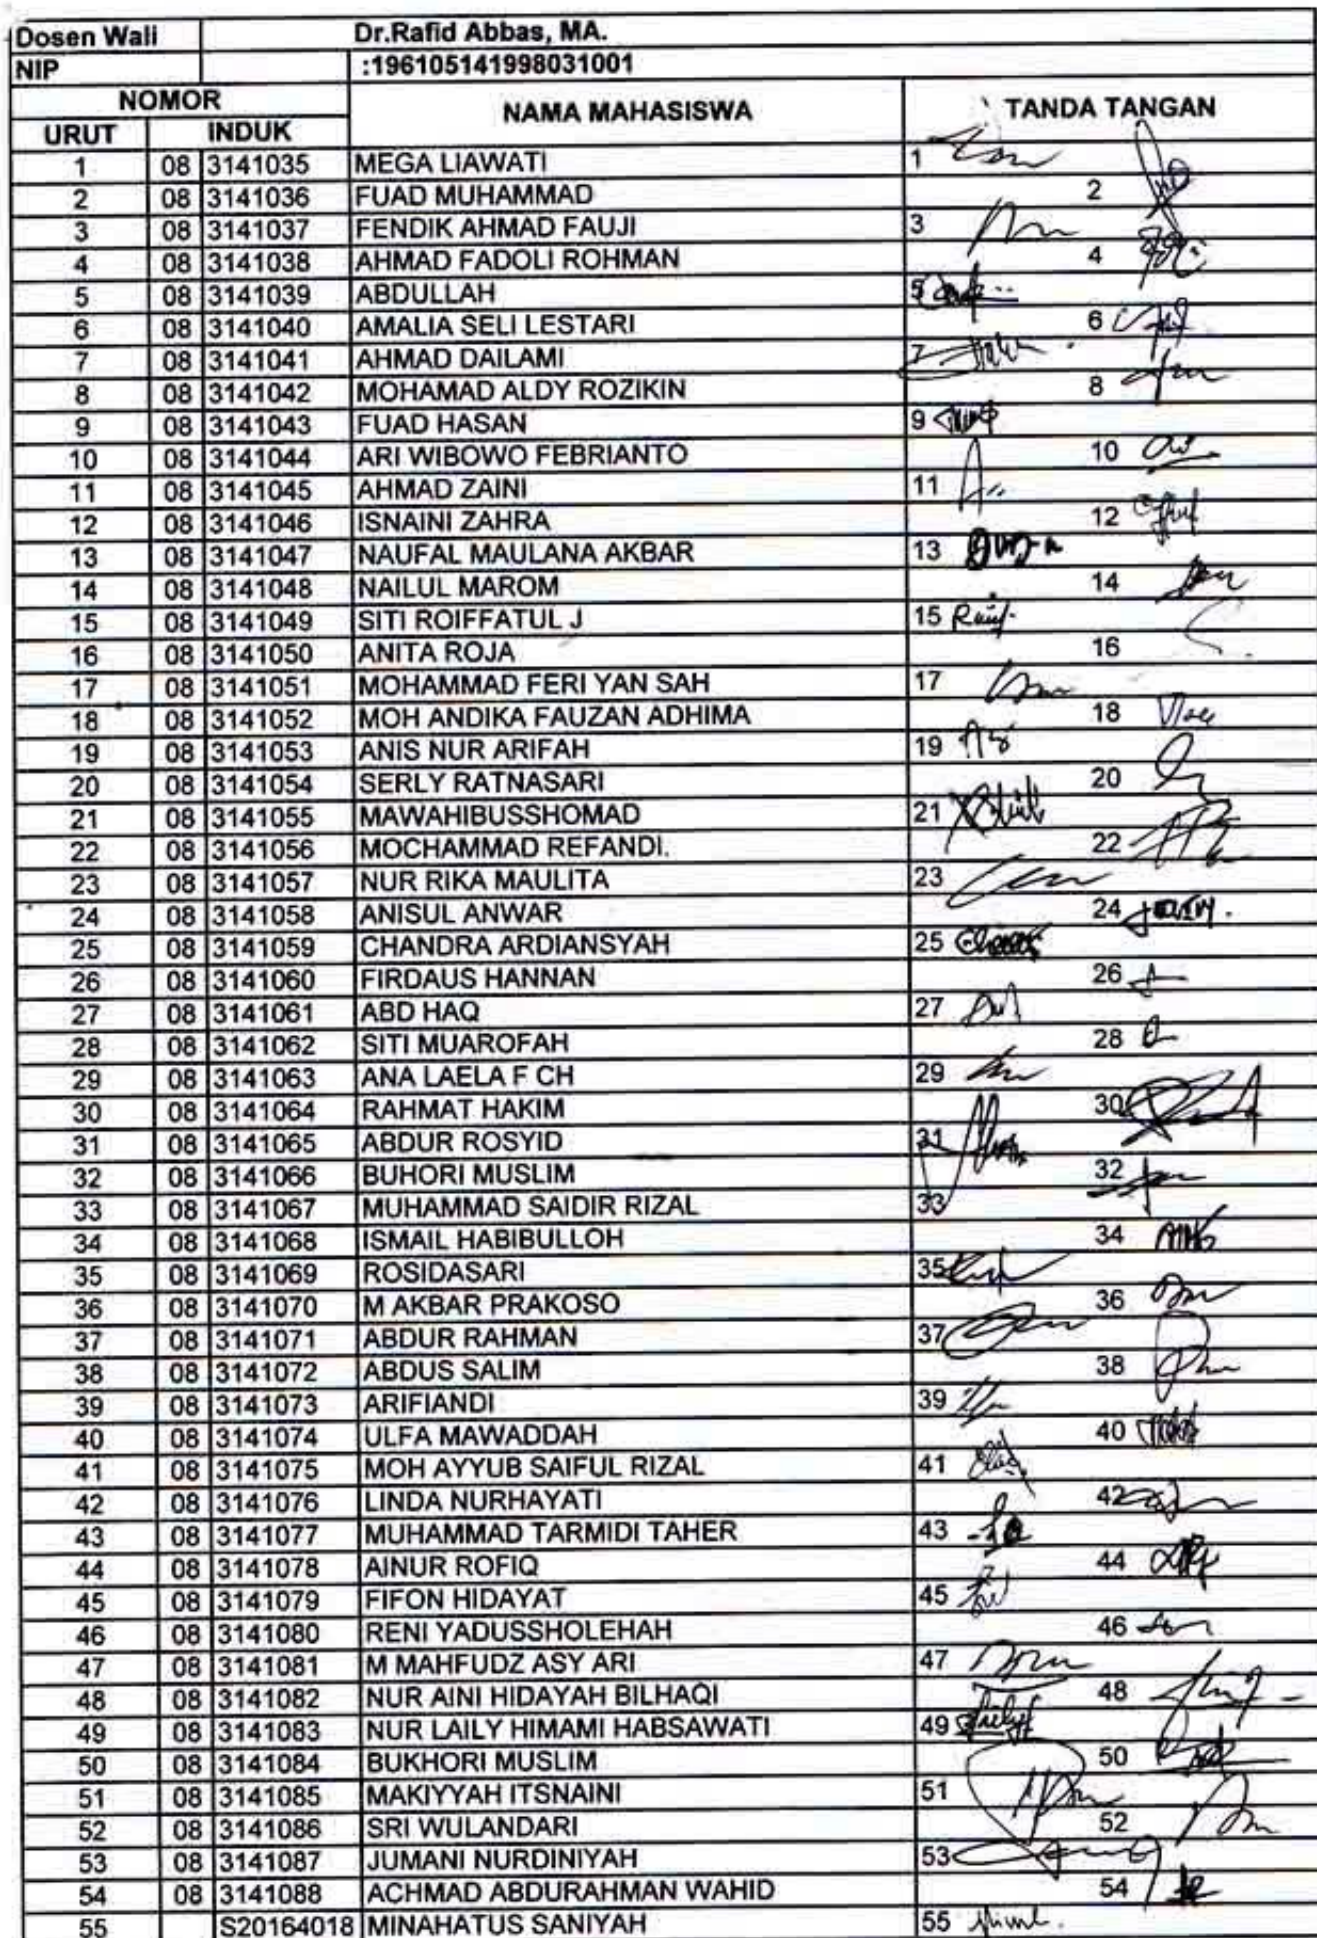 Dosen Wali Dr.Rafid Abbas, MA.
NIP :196105141998031001
NOMOR NAMA MAHASISWA TANDA TANGAN
URUT INDUK
1 08 3141035 MEGA LIAWATI 1
2 08 3141036 FUAD MUHAMMAD 2
3 08 3141037 FENDIK AHMAD FAUJI 3
4 08 3141038 AHMAD FADOLI ROHMAN 4
5 08 3141039 ABDULLAH 5
6 08 3141040 AMALIA SELI LESTARI 6
7 08 3141041 AHMAD DAILAMI 7
8 08 3141042 MOHAMAD ALDY ROZIKIN 8
9 08 3141043 FUAD HASAN 9
10 08 3141044 ARI WIBOWO FEBRIANTO 10
11 08 3141045 AHMAD ZAINI 11
12 08 3141046 ISNAINI ZAHRA 12
13 08 3141047 NAUFAL MAULANA AKBAR 13
14 08 3141048 NAILUL MAROM 14
15 08 3141049 SITI ROIFFATUL J 15
16 08 3141050 ANITA ROJA 16
17 08 3141051 MOHAMMAD FERI YAN SAH 17
18 08 3141052 MOH ANDIKA FAUZAN ADHIMA 18
19 08 3141053 ANIS NUR ARIFAH 19
20 08 3141054 SERLY RATNASARI 20
21 08 3141055 MAWAHIBUSSHOMAD 21
22 08 3141056 MOCHAMMAD REFANDI. 22
23 08 3141057 NUR RIKA MAULITA 23
24 08 3141058 ANISUL ANWAR 24
25 08 3141059 CHANDRA ARDIANSYAH 25
26 08 3141060 FIRDAUS HANNAN 26
27 08 3141061 ABD HAQ 27
28 08 3141062 SITI MUAROFAH 28
29 08 3141063 ANA LAELA F CH 29
30 08 3141064 RAHMAT HAKIM 30
31 08 3141065 ABDUR ROSYID 31
32 08 3141066 BUHORI MUSLIM 32
33 08 3141067 MUHAMMAD SAIDIR RIZAL 33
34 08 3141068 ISMAIL HABIBULLOH 34
35 08 3141069 ROSIDASARI 35
36 08 3141070 M AKBAR PRAKOSO 36
37 08 3141071 ABDUR RAHMAN 37
38 08 3141072 ABDUS SALIM 38
39 08 3141073 ARIFIANDI 39
40 08 3141074 ULFA MAWADDAH 40
41 08 3141075 MOH AYYUB SAIFUL RIZAL 41
42 08 3141076 LINDA NURHAYATI 42
43 08 3141077 MUHAMMAD TARMIDI TAHER 43
44 08 3141078 AINUR ROFIQ 44
45 08 3141079 FIFON HIDAYAT 45
46 08 3141080 RENI YADUSSHOLEHAH 46
47 08 3141081 M MAHFUDZ ASY ARI 47
48 08 3141082 NUR AINI HIDAYAH BILHAQI 48
49 08 3141083 NUR LAILY HIMAMI HABSAWATI 49
50 08 3141084 BUKHORI MUSLIM 50
51 08 3141085 MAKIYYAH ITSNAINI 51
52 08 3141086 SRI WULANDARI 52
53 08 3141087 JUMANI NURDINIYAH 53
54 08 3141088 ACHMAD ABDURAHMAN WAHID 54
55 S20164018 MINAHATUS SANIYAH 55